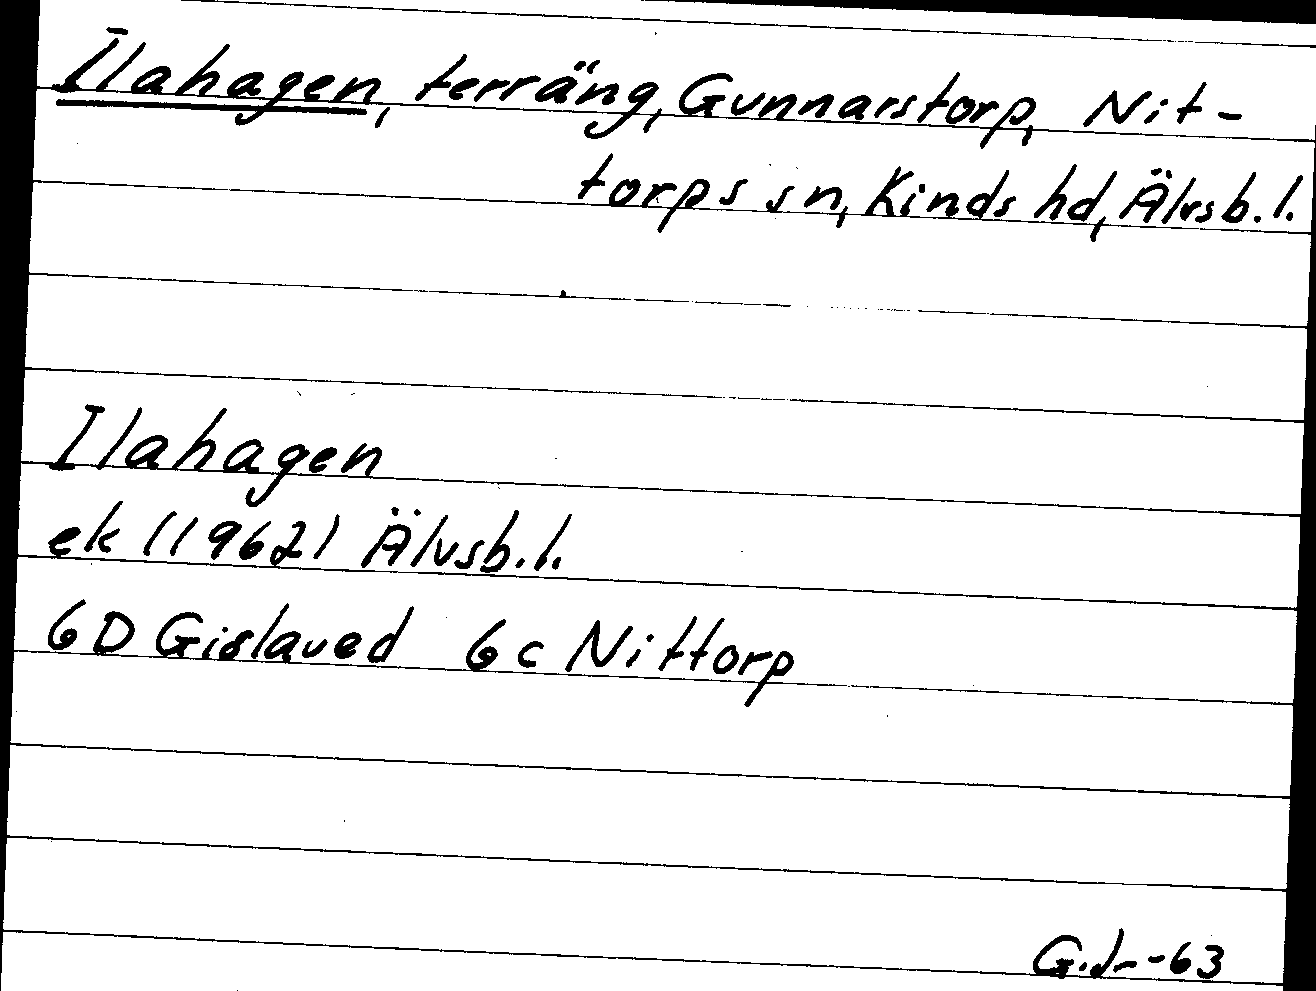 Ilahagen, terräng, Gunnarstorp, Nit-
torps sn, Kinds hd, Älvsb.l.
Ilahagen
ek (1962) Älvsb.l.
6D Gislaved 6c Nittorp
G.Jr -63